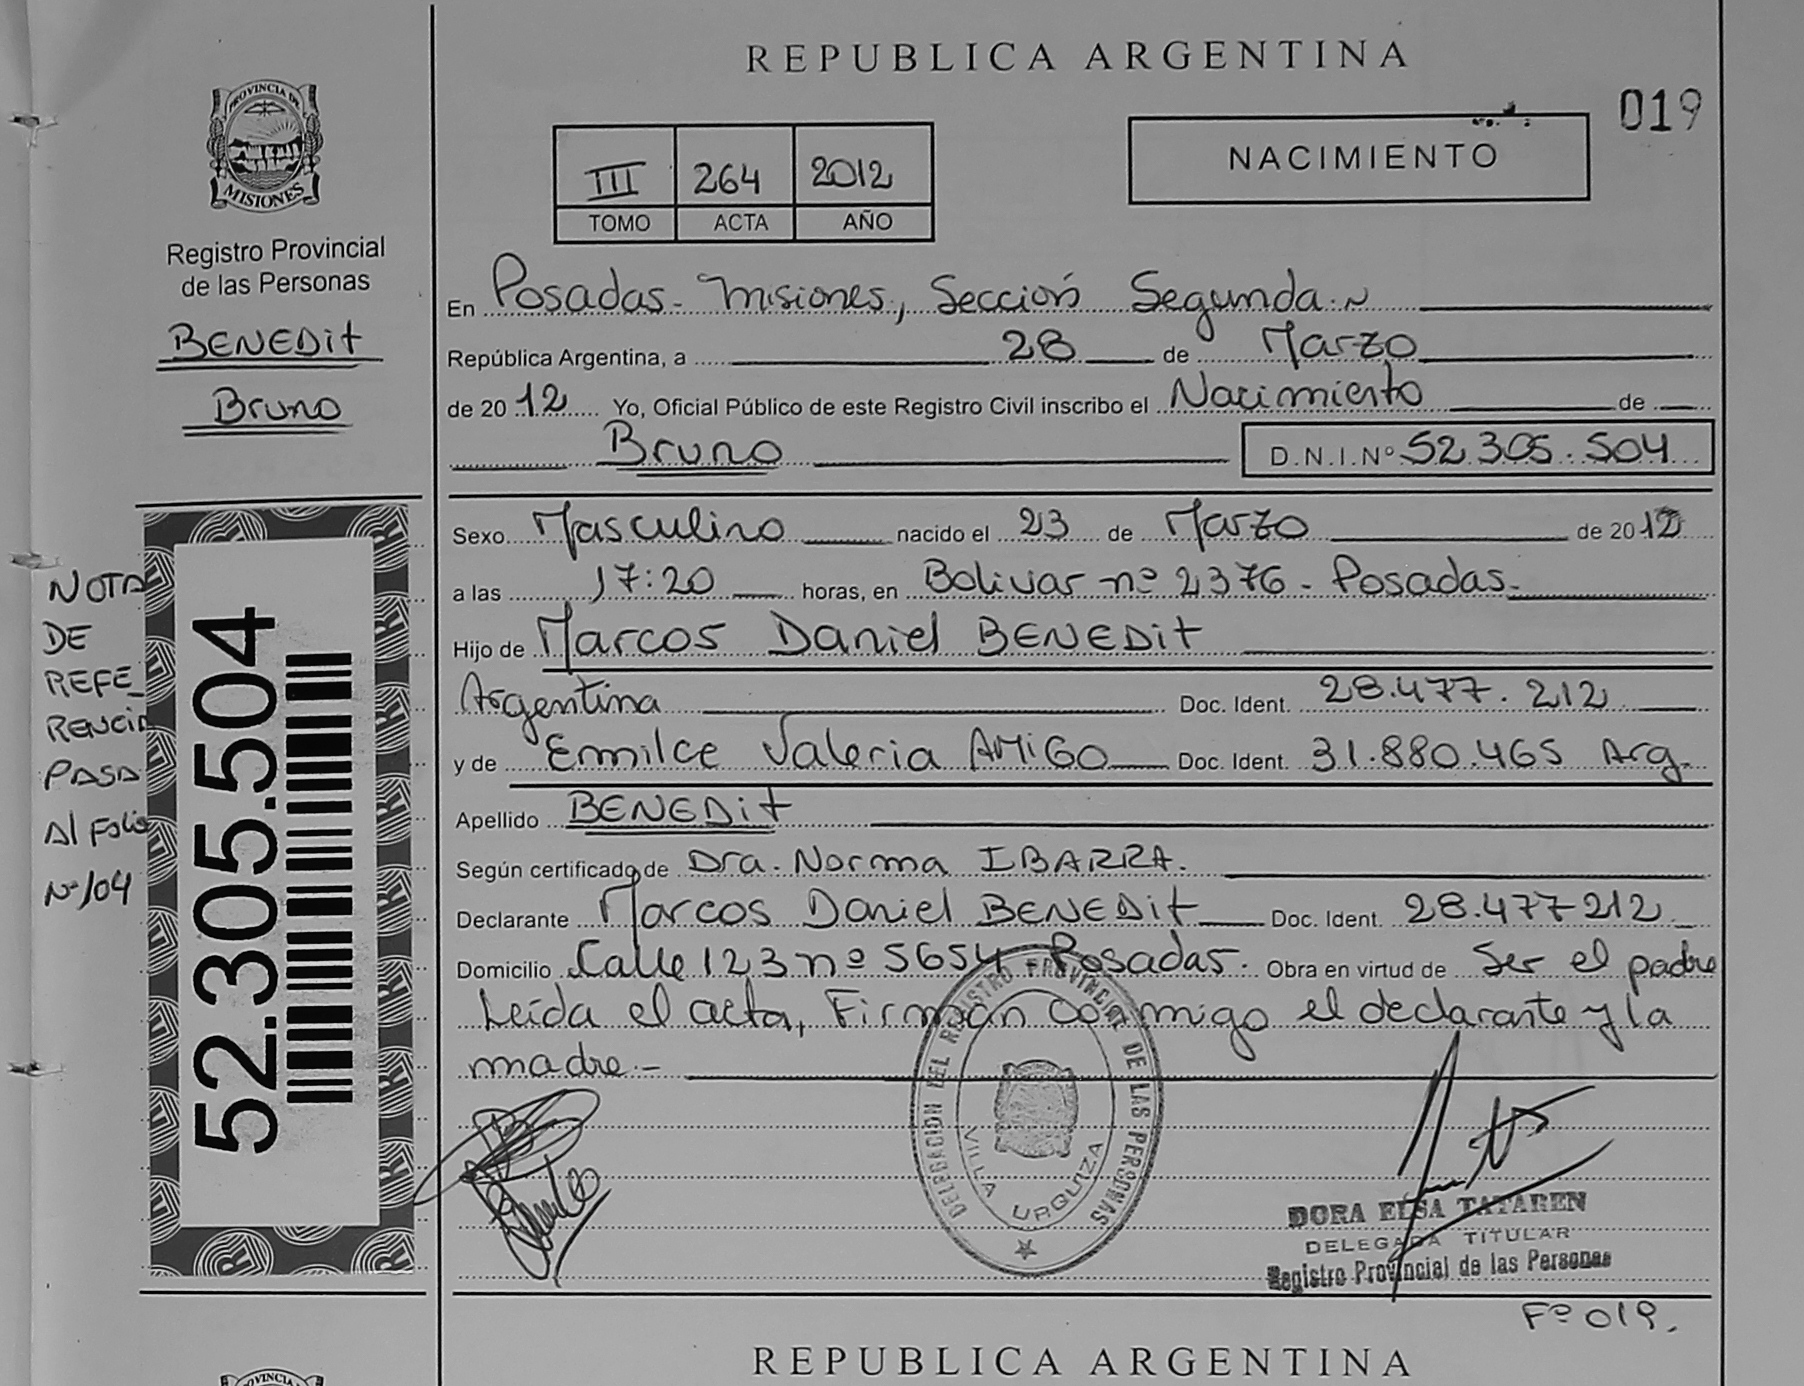 REPUBLICA ARGENTINA
019
PROVINCIA DE
MISIONES
Registro Provincial
de las Personas
BENEDit
Bruno
III 264 2012
TOMO ACTA AÑO
NACIMIENTO
En Posadas - Misiones, Sección Segunda.
República Argentina, a 28 de Marzo
de 2012 Yo, Oficial Público de este Registro Civil inscribo el Nacimiento de
Bruno D.N.I.Nº 52.305.504
Sexo Masculino nacido el 23 de Marzo de 2012
a las 17:20 horas, en Bolivar nº 2376 - Posadas.
Hijo de Marcos Daniel BENEDit
Argentina Doc. Ident. 28.477.212
y de Emilce Valeria AMiGO Doc. Ident. 31.880.465 Arg.
Apellido BENEDit
Según certificado de Dra. Norma IBARRA.
Declarante Marcos Daniel BENEDit Doc. Ident. 28.477212
Domicilio Calle 123 nº 5654 Posadas. Obra en virtud de Ser el padre
Leída el acta, Firman conmigo el declarante y la
madre.-
NOTA
DE
REFE_
RENCIA
PASA
Al Folio
Nº 104
52.305.504
DELEGACION DEL REGISTRO PROVINCIAL DE LAS PERSONAS
VILLA URQUIZA
DORA ELSA TATAREN
DELEGADA TITULAR
Registro Provincial de las Personas
Fº 019.
REPUBLICA ARGENTINA